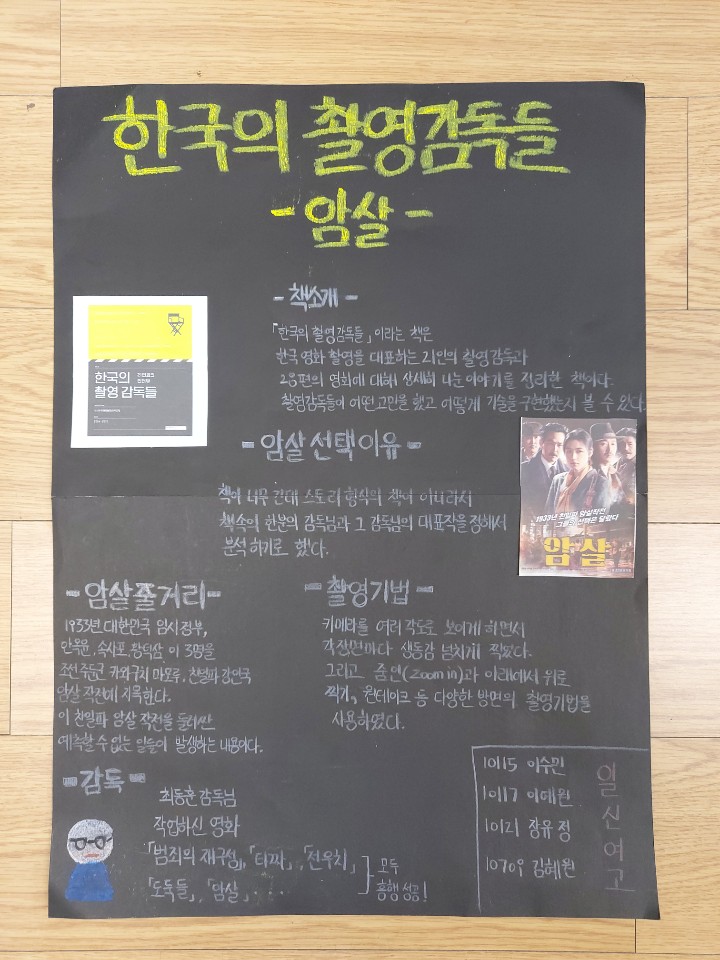 한국의 촬영감독들
- 암살 -
- 책소개 -
「한국의 촬영감독들」이라는 책은
한국 영화 촬영을 대표하는 21인의 촬영감독과
28편의 영화에 대해 상세히 나눈 이야기를 정리한 책이다.
촬영감독들이 어떤 고민을 했고 어떻게 기술을 구현했는지 볼 수 있다.
한국의
촬영 감독들
- 암살 선택 이유 -
책이 너무 긴데 스토리 형식의 책이 아니라서
책 속의 한분의 감독님과 그 감독님의 대표작을 정해서
분석하기로 했다.
1933년 친일파 암살작전
그들의 선택은 달랐다
암살
- 암살 줄거리 -
1933년 대한민국 임시정부,
안옥윤, 속사포, 황덕삼 이 3명을
조선주둔군 카와구치 마모루, 친일파 강인국
암살 작전에 지목한다.
이 친일파 암살 작전을 둘러싼
예측할 수 없는 일들이 발생하는 내용이다.
- 촬영기법 -
카메라를 여러 각도로 보이게 하면서
각 장면마다 생동감 넘치게 찍었다.
그리고 줌인(zoom in)과 아래에서 위로
찍기, 원테이크 등 다양한 방면의 촬영기법을
사용하였다.
- 감독 -
최동훈 감독님
작업하신 영화
「범죄의 재구성」, 「타짜」, 「전우치」
「도둑들」, 「암살」 ....
모두
흥행 성공!
10115 이수민
10117 이예원
10121 장유정
10709 김혜원
일신여고